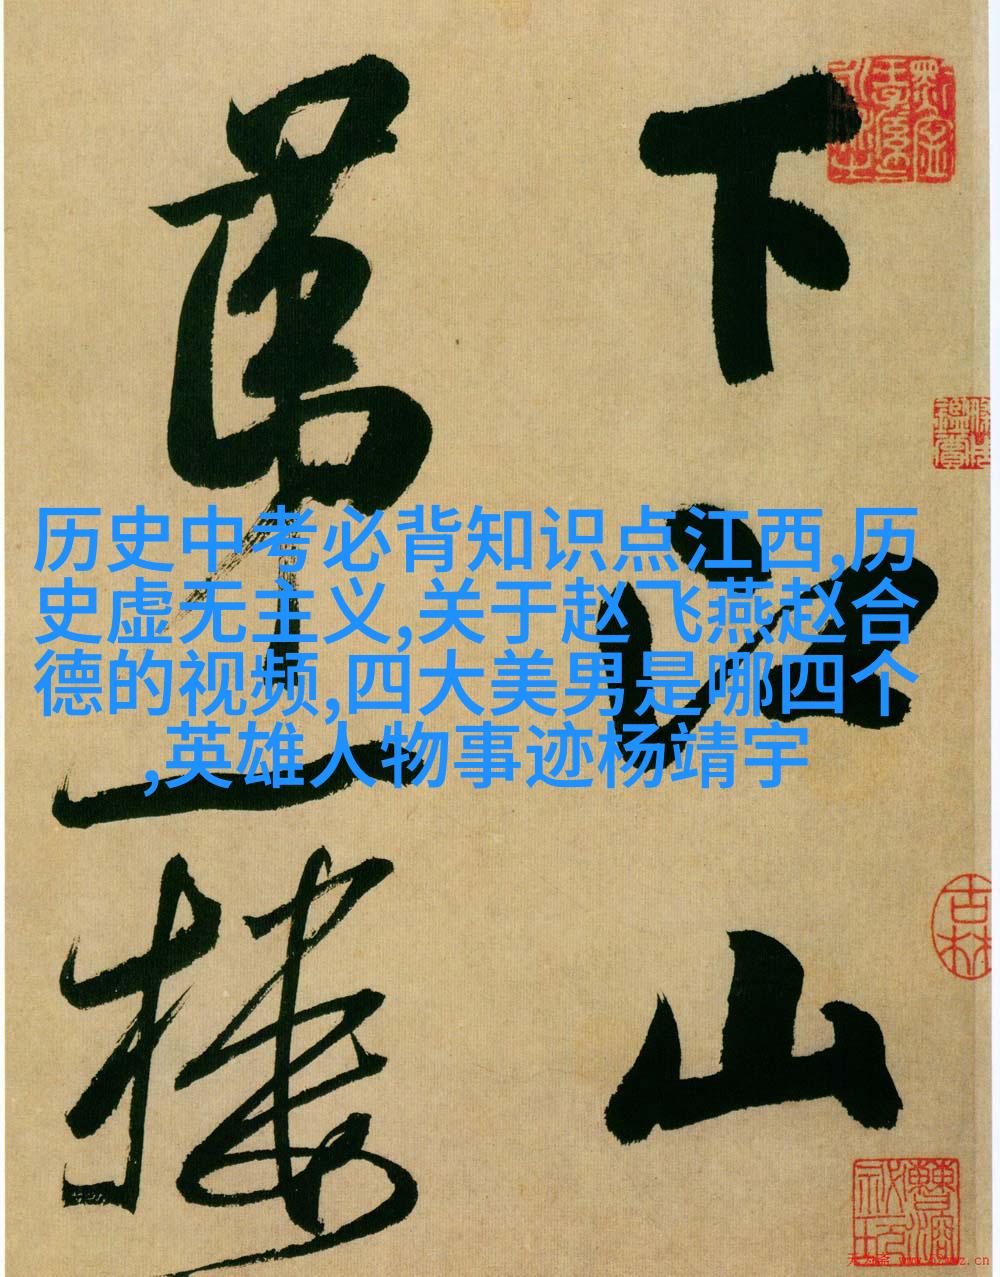 下江山
第一樓
历史中考必背知识点江西,历
史虚无主义,关于赵飞燕赵合
德的视频,四大美男是哪四个
,英雄人物事迹杨靖宇